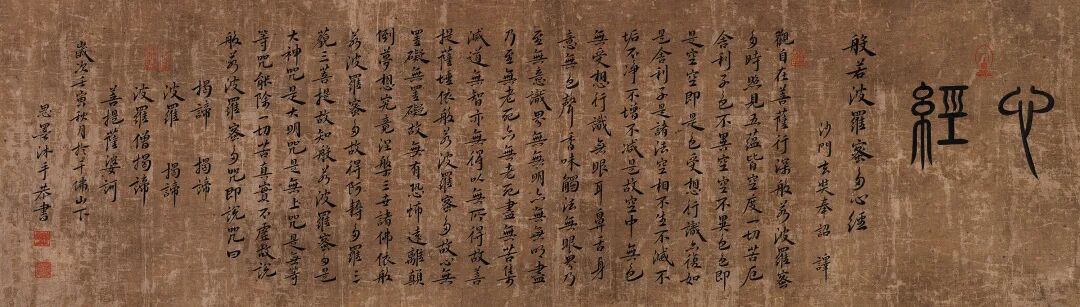 心
經
般若波羅蜜多心經
沙門玄奘奉詔 譯
觀自在菩薩行深般若波羅蜜
多時照見五蘊皆空度一切苦厄
舍利子色不異空空不異色色即
是空空即是色受想行識亦復如
是舍利子是諸法空相不生不滅不
垢不淨不增不減是故空中無色
無受想行識無眼耳鼻舌身
意無色聲香味觸法無眼界乃
至無意識界無無明亦無無明盡
乃至無老死亦無老死盡無苦集
滅道無智亦無得以無所得故菩
提薩埵依般若波羅蜜多故心無
罣礙無罣礙故無有恐怖遠離顛
倒夢想究竟涅槃三世諸佛依般
若波羅蜜多故得阿耨多羅三
藐三菩提故知般若波羅蜜多是
大神咒是大明咒是無上咒是無等
等咒能除一切苦真實不虛故說
般若波羅蜜多咒即說咒曰
揭諦 揭諦
波羅 揭諦
波羅僧揭諦
菩提薩婆訶
歲次壬寅秋月於千佛山下
思沐手恭書